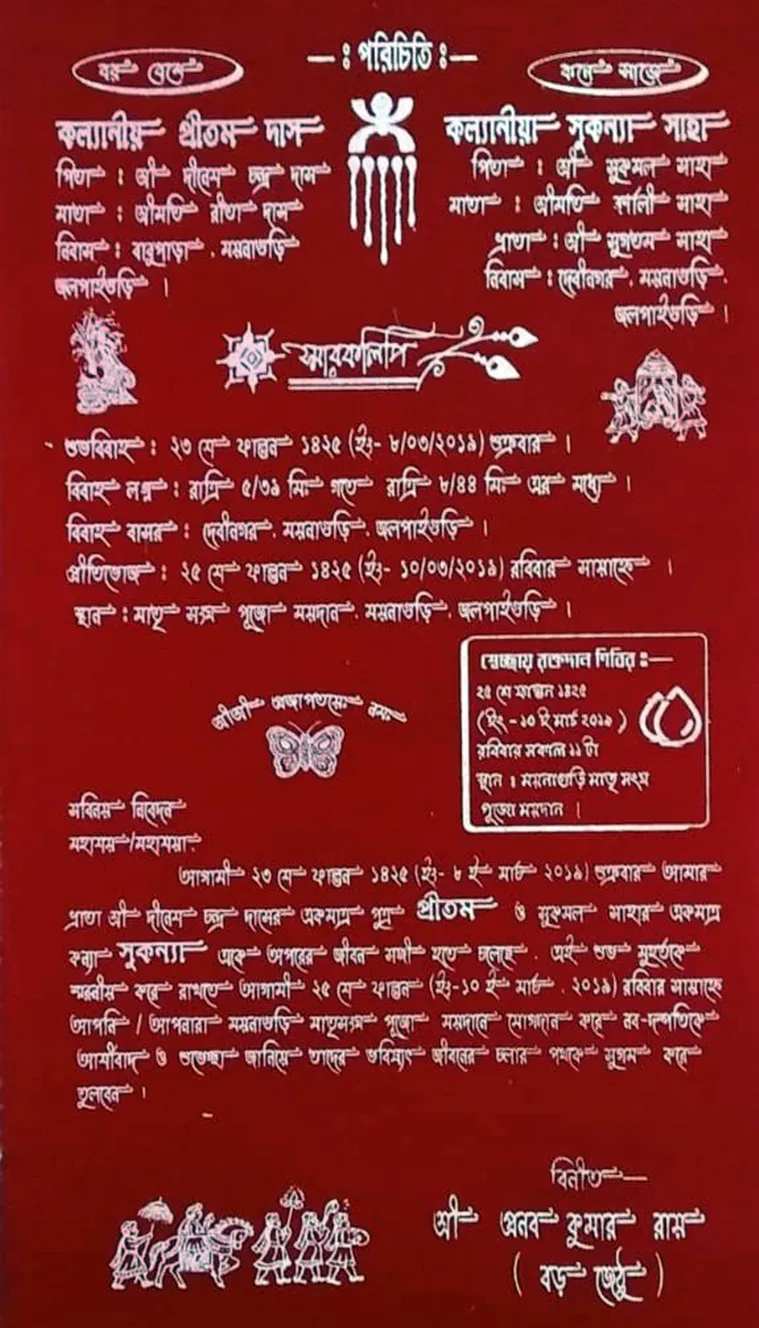 —ঃ পরিচিতি ঃ—
বর বেশে
কনে সাজে
কল্যানীয় প্রীতম দাস
পিতা : শ্রী দীনেশ চন্দ্র দাস
মাতা : শ্রীমতি রীতা দাস
নিবাস : বাবুপাড়া, ময়নাগুড়ি
জলপাইগুড়ি ।
কল্যানীয়া সুকন্যা সাহা
পিতা : শ্রী সুকমল সাহা
মাতা : শ্রীমতি কাকলী সাহা
ভ্রাতা : শ্রী সুগতম সাহা
নিবাস : দেবীনগর, ময়নাগুড়ি,
জলপাইগুড়ি ।
স্মারকলিপি
শুভবিবাহ : ২৩ শে ফাল্গুন ১৪২৫ (ইং- ৮/০৩/২০১৯) শুক্রবার ।
বিবাহ লগ্ন : রাত্রি ৫/৩৯ মিঃ গতে রাত্রি ৮/৪৪ মিঃ এর মধ্যে ।
বিবাহ বাসর : দেবীনগর, ময়নাগুড়ি, জলপাইগুড়ি ।
প্রীতিভোজ : ২৫ শে ফাল্গুন ১৪২৫ (ইং- ১০/০৩/২০১৯) রবিবার সায়াহ্নে ।
স্থান : মাতৃ সংঘ পূজো ময়দান, ময়নাগুড়ি, জলপাইগুড়ি ।
স্বেচ্ছায় রক্তদান শিবির ঃ—
২৫ শে ফাল্গুন ১৪২৫
(ইং - ১০ ই মার্চ ২০১৯ )
রবিবার সকাল ১১ টা
স্থান : ময়নাগুড়ি মাতৃ সংঘ
পূজো ময়দান ।
শ্রীশ্রী প্রজাপতয়ে নমঃ
সবিনয় নিবেদন
মহাশয়/মহাশয়া,
আগামী ২৩ শে ফাল্গুন ১৪২৫ (ইং- ৮ ই মার্চ ২০১৯) শুক্রবার আমার
ভ্রাতা শ্রী দীনেশ চন্দ্র দাসের একমাত্র পুত্র প্রীতম ও সুকমল সাহার একমাত্র
কন্যা সুকন্যা একে অপরের জীবন সঙ্গী হতে চলেছে, এই শুভ মুহুর্তকে
স্মরনীয় করে রাখতে আগামী ২৫ শে ফাল্গুন (ইং-১০ ই মার্চ, ২০১৯) রবিবার সায়াহ্নে
আপনি / আপনারা ময়নাগুড়ি মাতৃসংঘ পূজো ময়দানে যোগদান করে নব-দম্পতিকে
আশীর্বাদ ও শুভেচ্ছা জানিয়ে তাদের ভবিষ্যৎ জীবনের চলার পথকে সুগম করে
তুলবেন ।
বিনীত—
শ্রী প্রনব কুমার রায়
( বড় জেঠু )